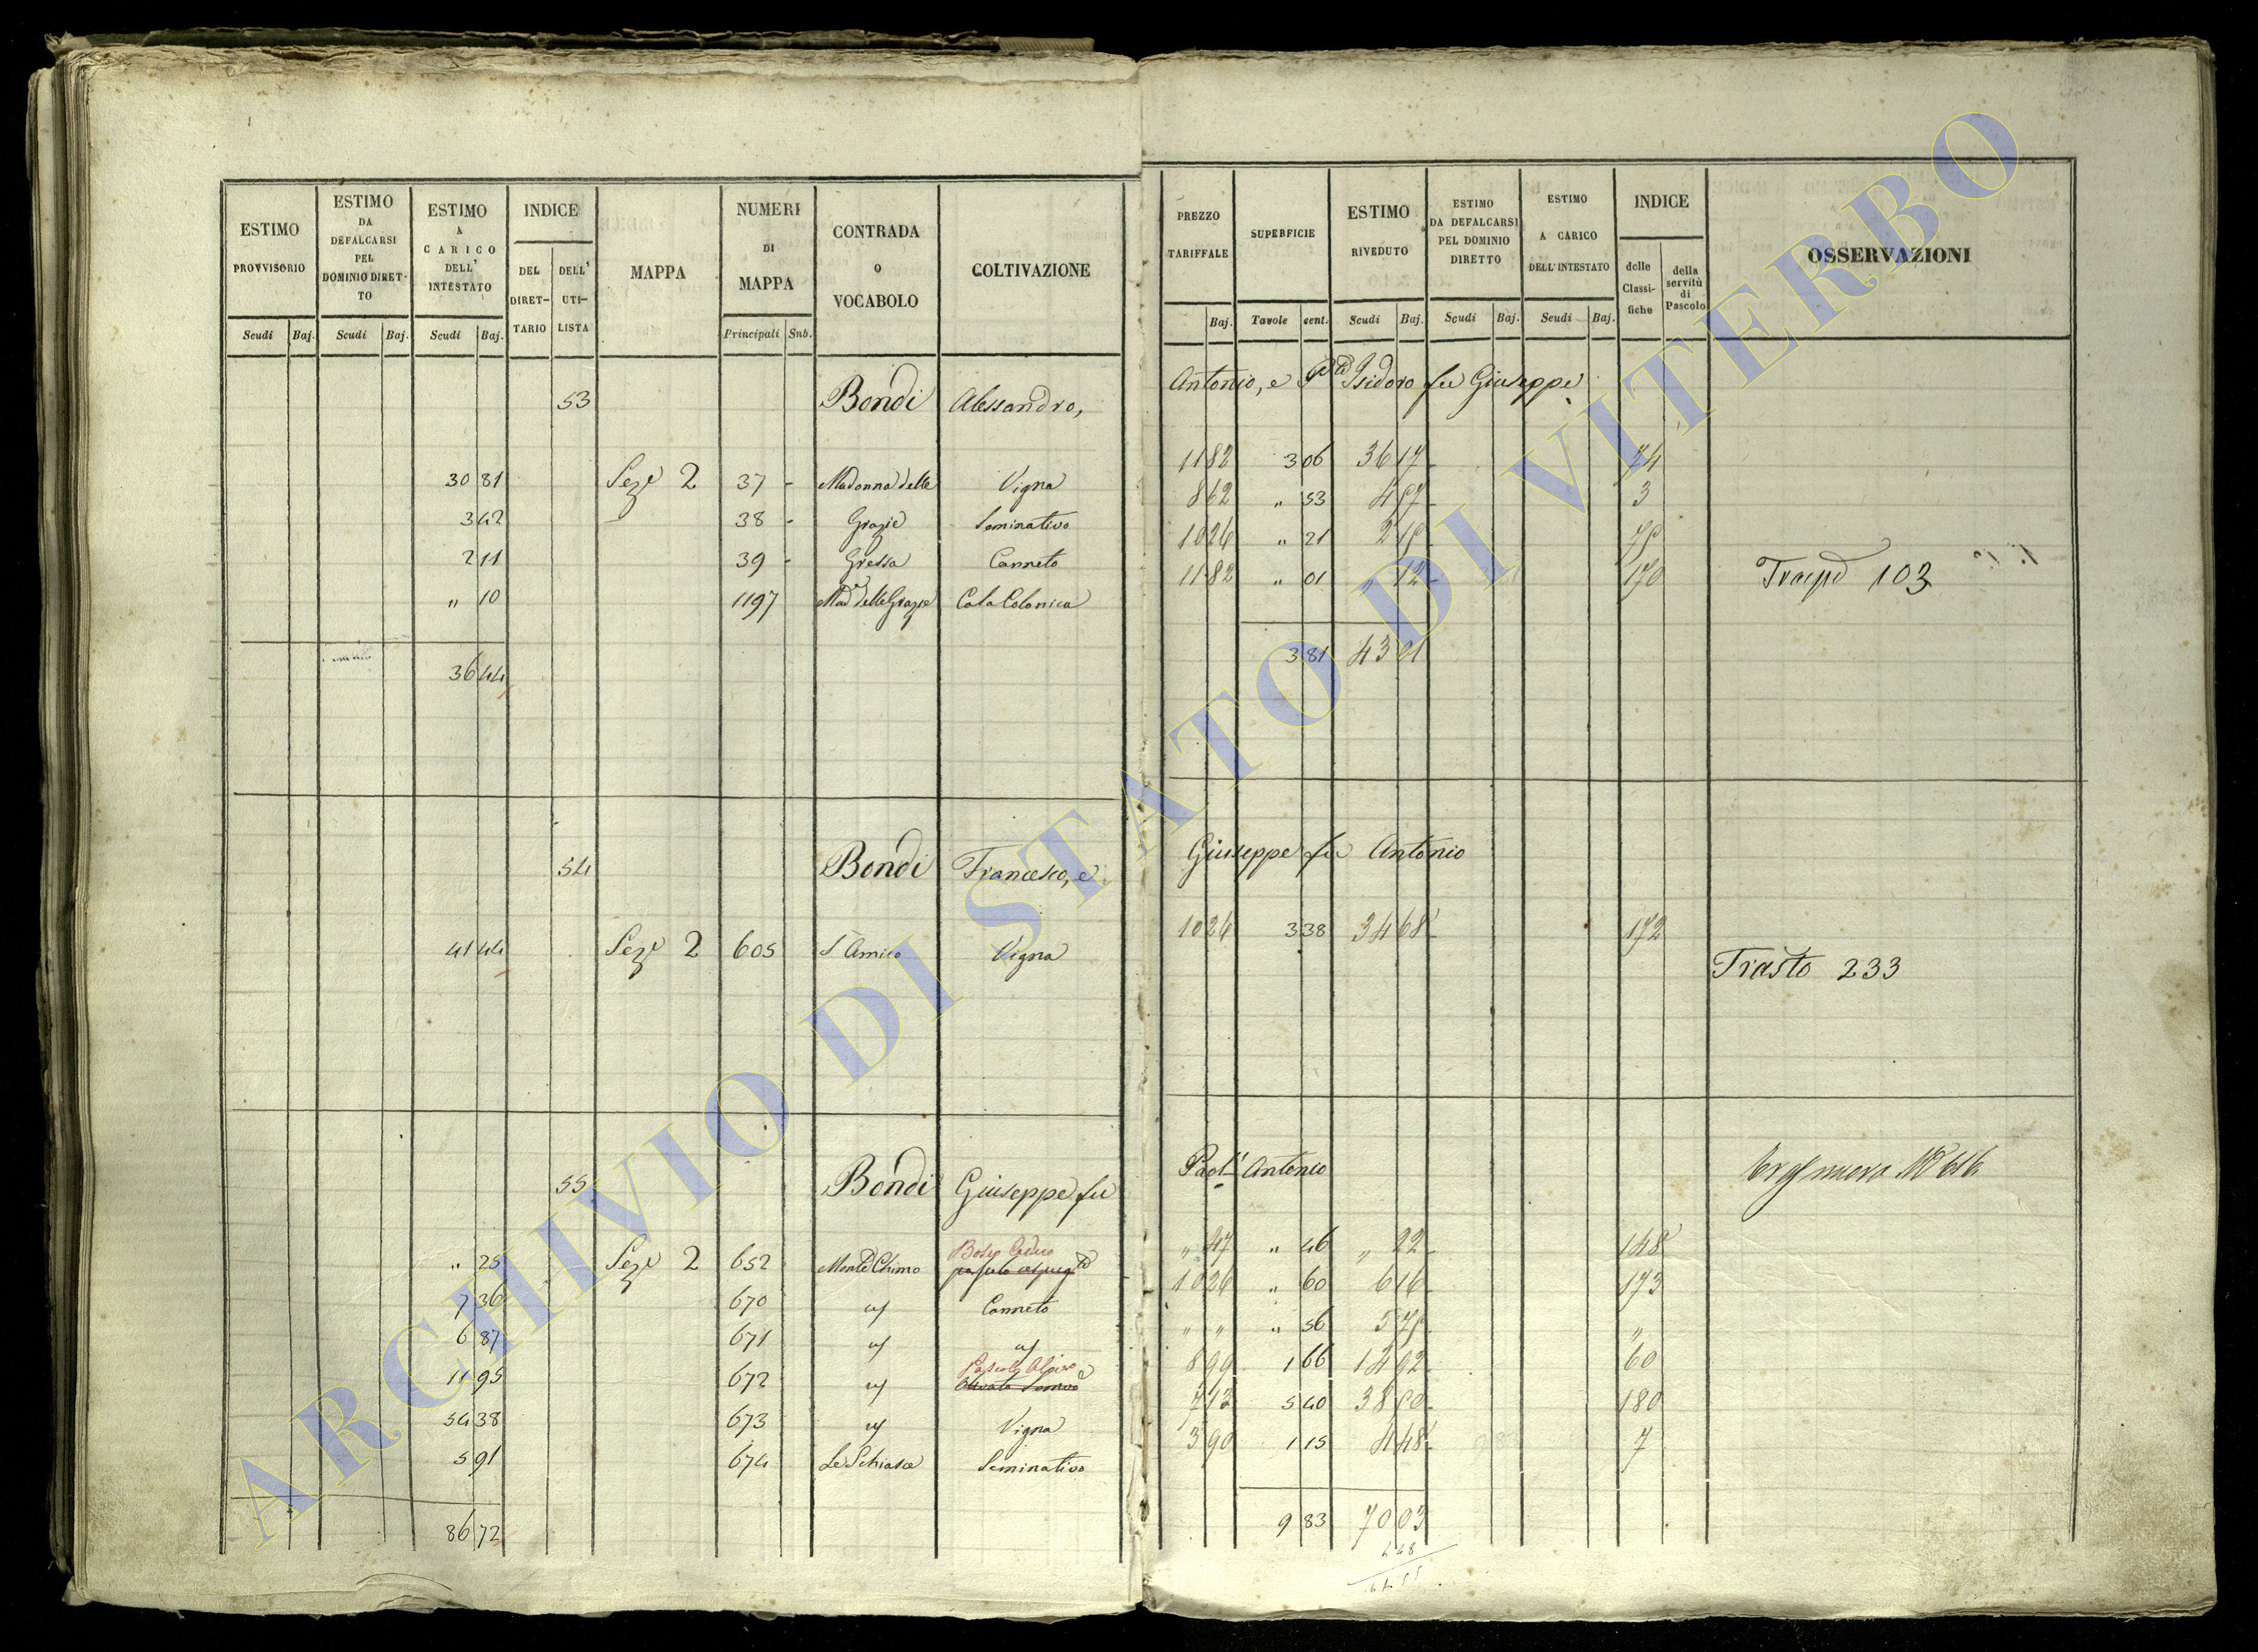 ESTIMO PROVVISORIO
Scudi Baj.
ESTIMO DA DEFALCARSI PEL DOMINIO DIRETTO
Scudi Baj.
ESTIMO A CARICO DELL' INTESTATO
Scudi Baj.
INDICE
DEL DIRETTARIO
DELL' UTILISTA
MAPPA
NUMERI DI MAPPA
Principali Sub.
CONTRADA o VOCABOLO
COLTIVAZIONE
PREZZO TARIFFALE
Baj.
SUPERFICIE
Tavole cent.
ESTIMO RIVEDUTO
Scudi Baj.
ESTIMO DA DEFALCARSI PEL DOMINIO DIRETTO
Scudi Baj.
ESTIMO A CARICO DELL' INTESTATO
Scudi Baj.
INDICE
delle Classifiche
della servitù di Pascolo
OSSERVAZIONI
53 Bondi Alessandro, Antonio, e Isidoro fu Giuseppe
30 81 Sezე 2 37 - Madonna delle Vigna 11 82 3 06 36 17 74
3 42 38 - Grazie Seminativo 8 62 " 53 4 57 3
2 11 39 - Gressa Canneto 10 26 " 21 2 15
" 10 1197 Mad delle Grazie Casa Colonica 11 82 " 01 " 12 170 103
36 44 3 81 43 01
54 Bondi Francesco, e Giuseppe fu Antonio
41 44 Sez 2 605 S Amico Vigna 10 26 3 38 34 68 172
Trasto 233
55 Bondi Giuseppe fu Antonio
" 25 Sez 2 652 Monte Chimo Bosco Ceduo " 47 " 46 " 22 148
7 36 670 Canneto 10 26 " 60 6 16 173
6 87 671 " " " 56 5 75 "
11 95 672 Pascolo Olivato 8 99 1 66 14 92 60
54 38 673 Vigna 7 13 5 40 38 50 180
5 91 674 Le Schiasce Seminativo 3 90 1 15 4 48 7
86 72 9 83 70 03
4 48
ARCHIVIO DI STATO DI VITERBO